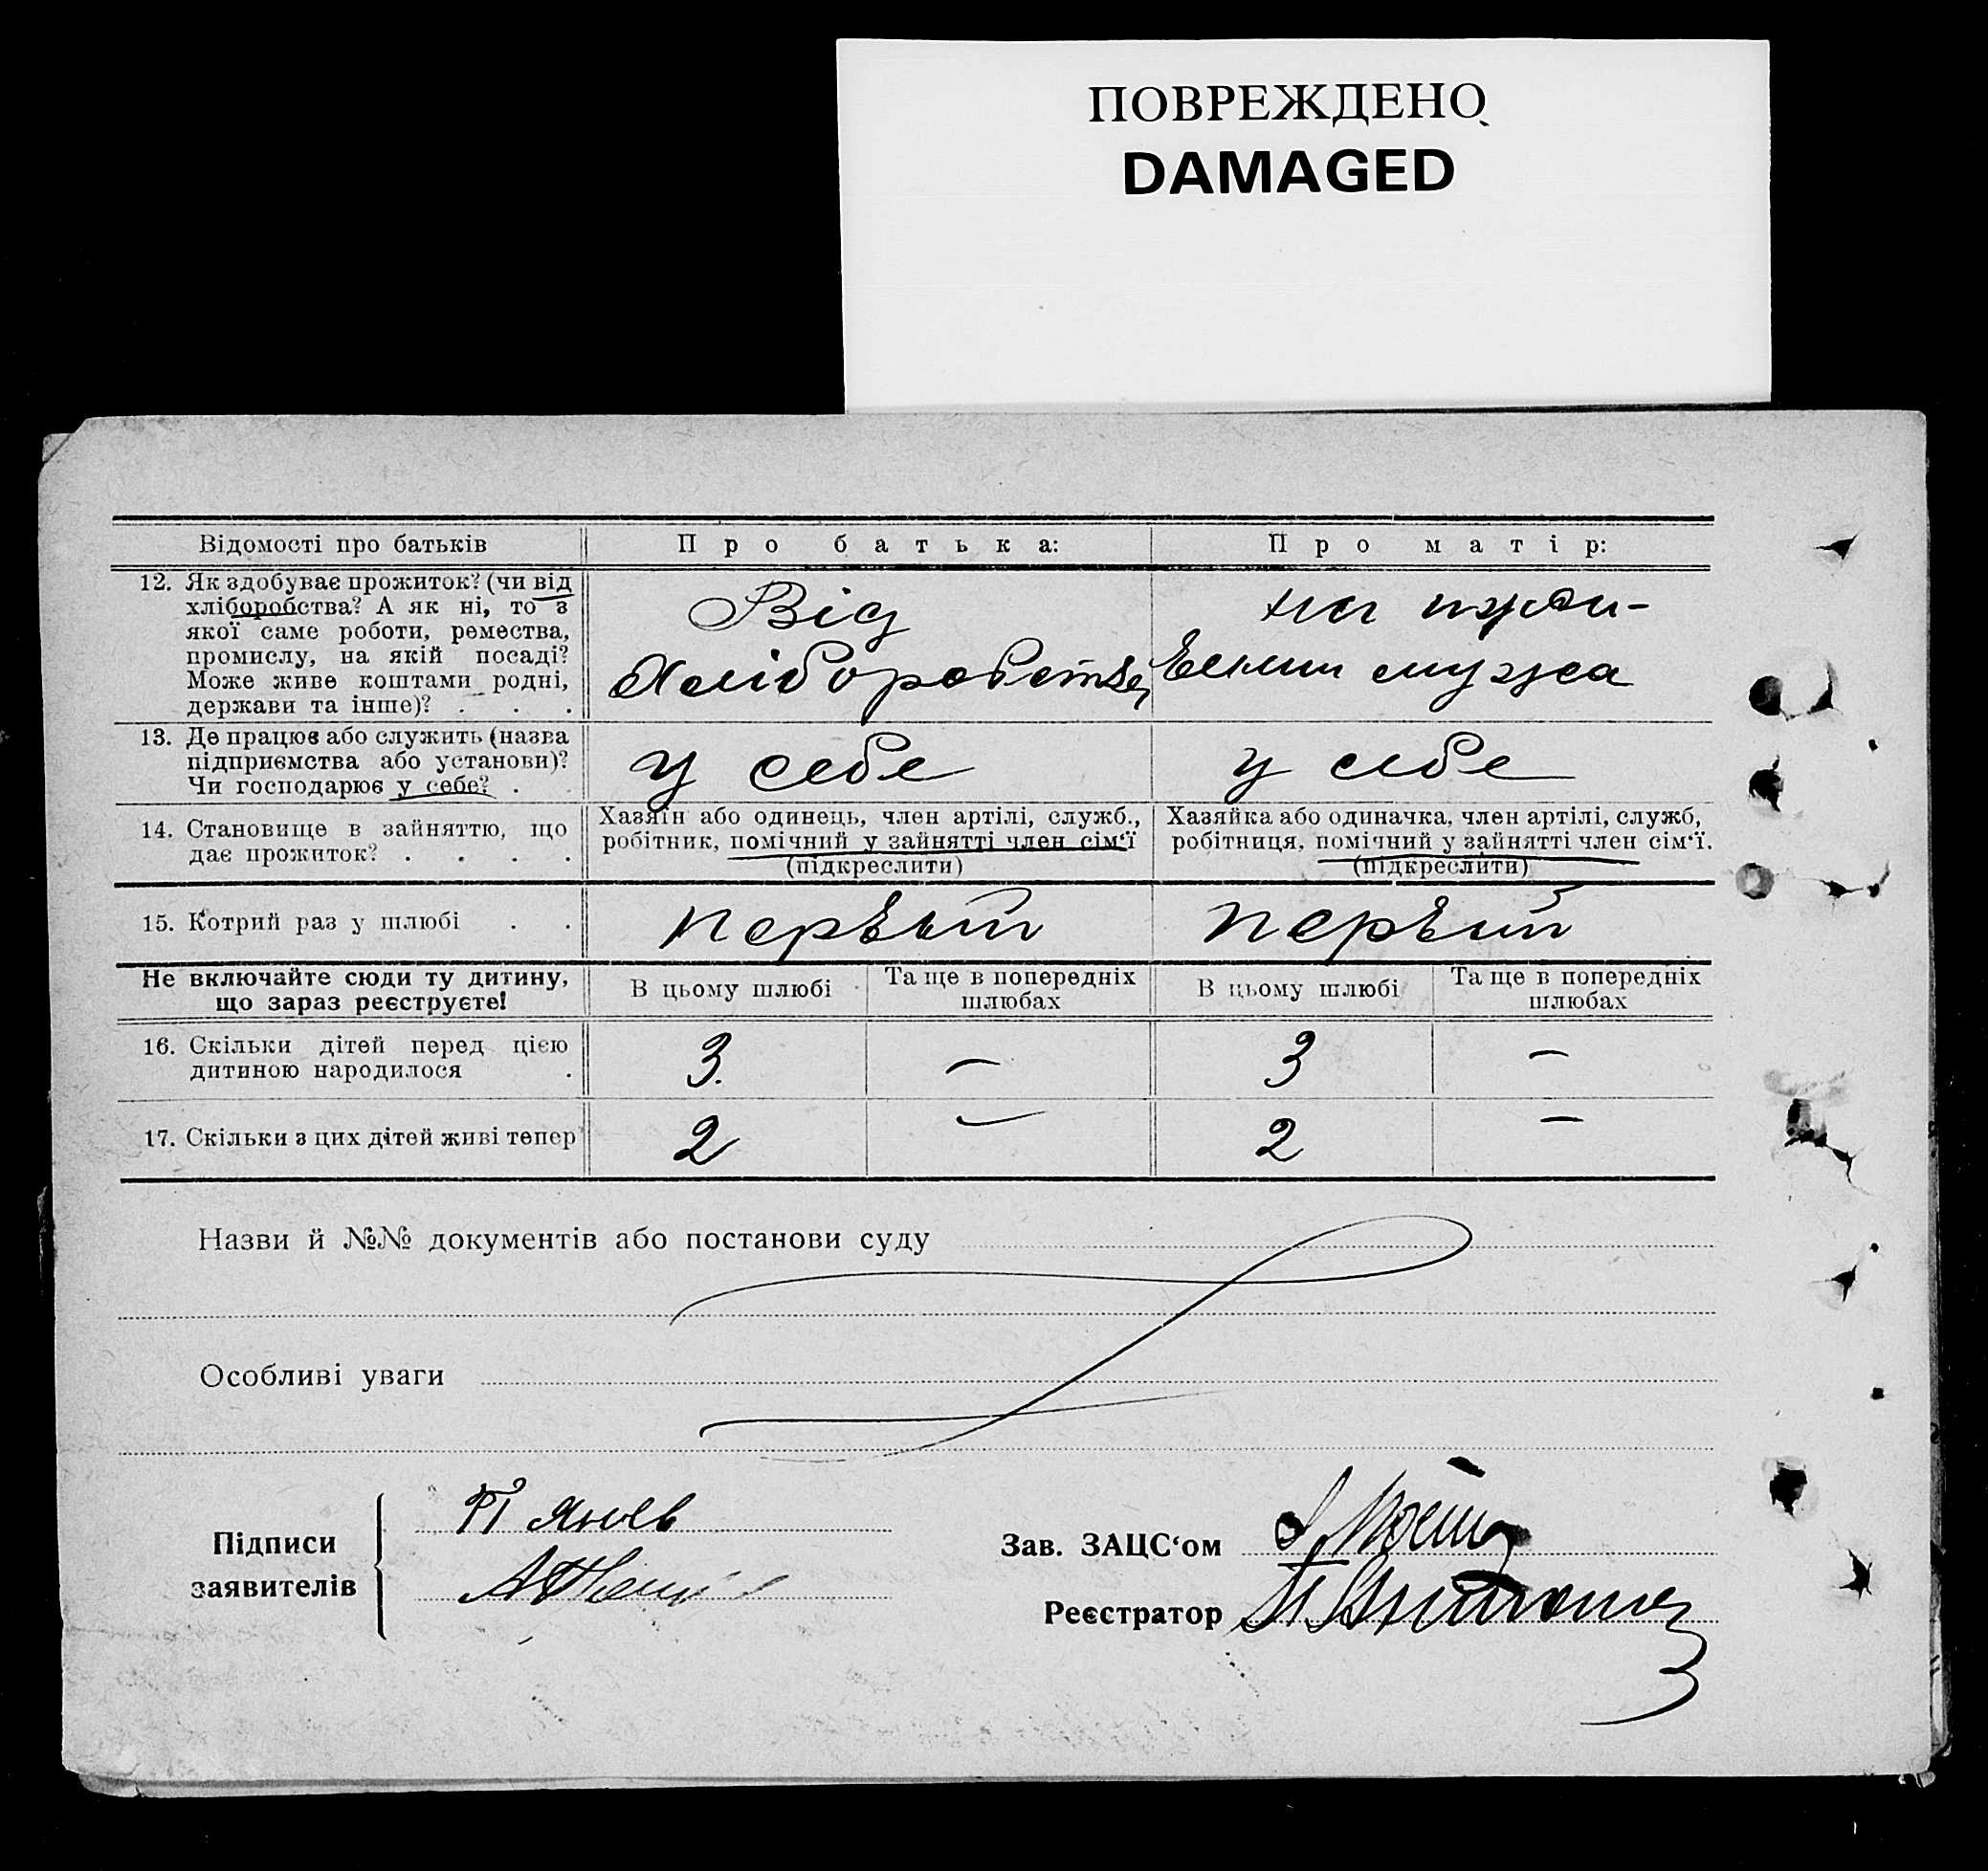 ПОВРЕЖДЕНО
DAMAGED
Відомості про батьків
Про батька:
Про матір:
12. Як здобуває прожиток? (чи від
хліборобства? А як ні, то з
якої саме роботи, ремества,
промислу, на якій посаді?
Може живе коштами родні,
держави та інше)? . . .
Від
Хліборобства
на иж̶ди-
вении мужа
13. Де працює або служить (назва
підприємства або установи)?
Чи господарює у себе? .
у себе
у себе
14. Становище в зайняттю, що
дає прожиток? . . . .
Хазяїн або одинець, член артілі, служб.,
робітник, помічний у зайнятті член сім‘ї
(підкреслити)
Хазяйка або одиначка, член артілі, служб,
робітниця, помічний у зайнятті член сім‘ї.
(підкреслити)
15. Котрий раз у шлюбі . .
первый
первий
Не включайте сюди ту дитину,
що зараз реєструєте!
В цьому шлюбі
Та ще в попередніх
шлюбах
В цьому шлюбі
Та ще в попередніх
шлюбах
16. Скільки дітей перед цією
дитиною народилося .
3. — 3 —
17. Скільки з цих дітей живі тепер
2 — 2 —
Назви й №№ документів або постанови суду
Особливі уваги
Підписи
заявителів
П Янев
Зав. ЗАЦС‘ом
Реєстратор